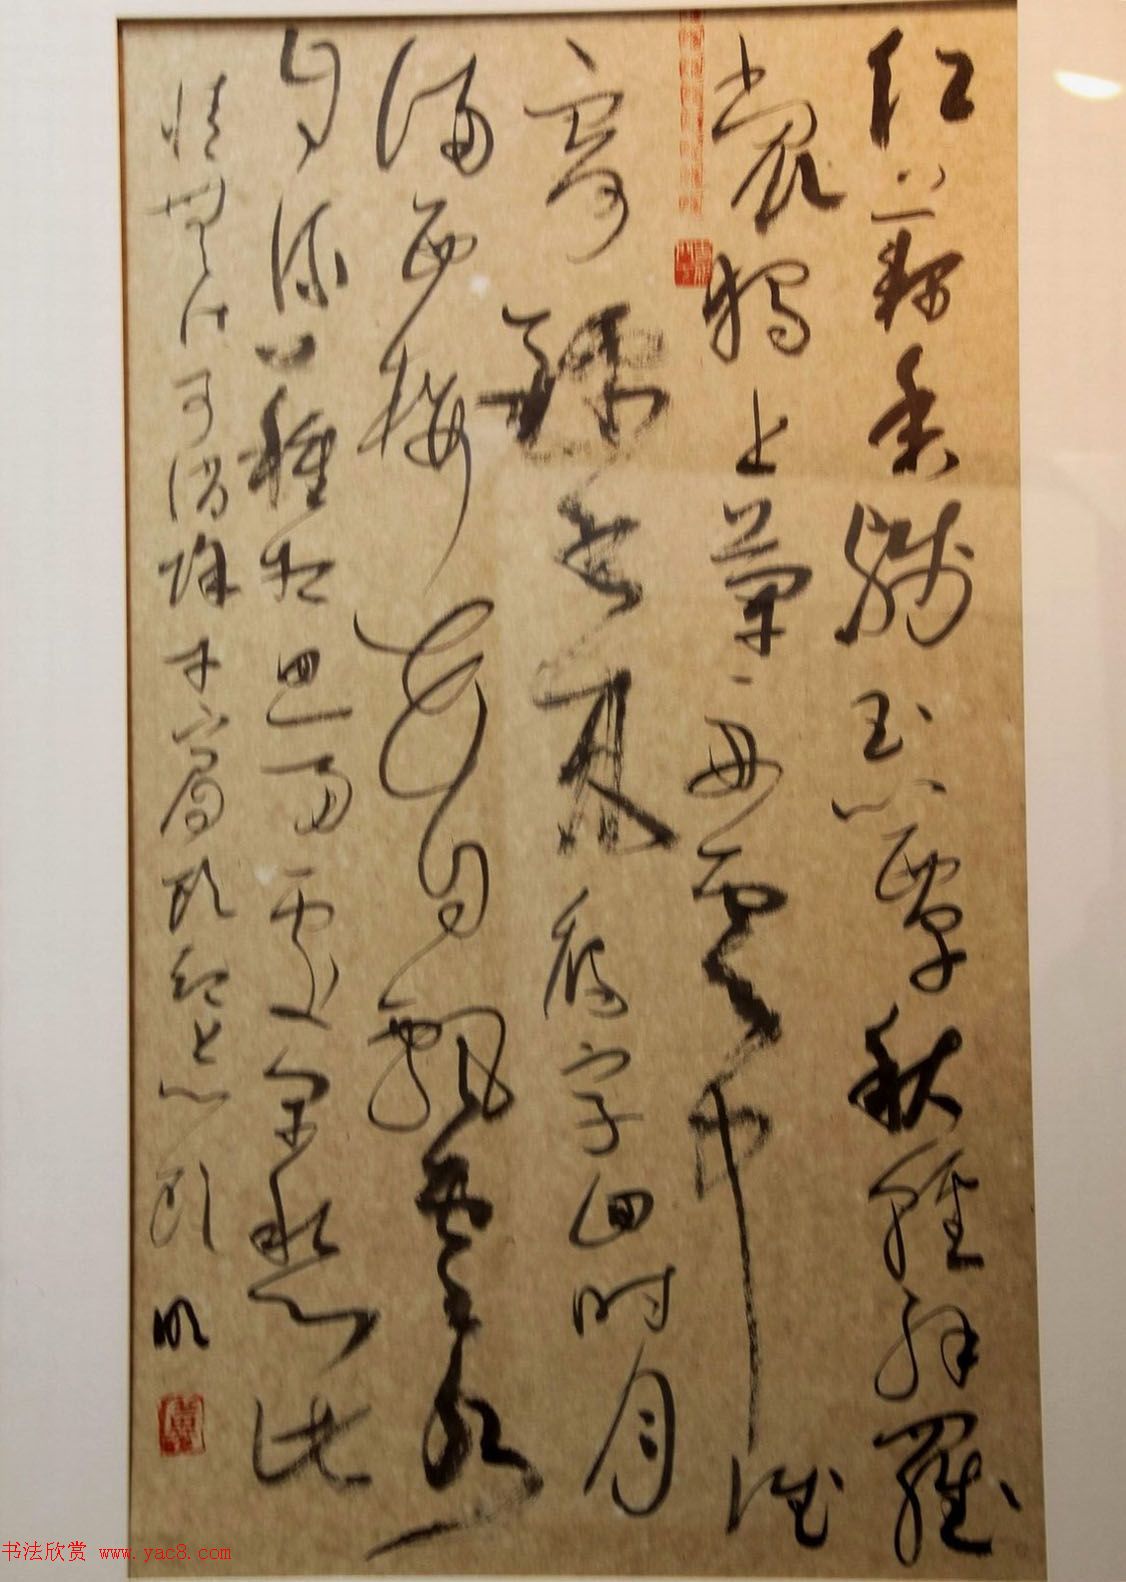 红藕香残玉簟秋轻解罗
裳独上兰舟云中谁
寄锦书来雁字回时月
满西楼花自飘零水
自流一种相思两处闲愁此
情无计可消除才下眉头却上心头
书法欣赏 www.yac8.com